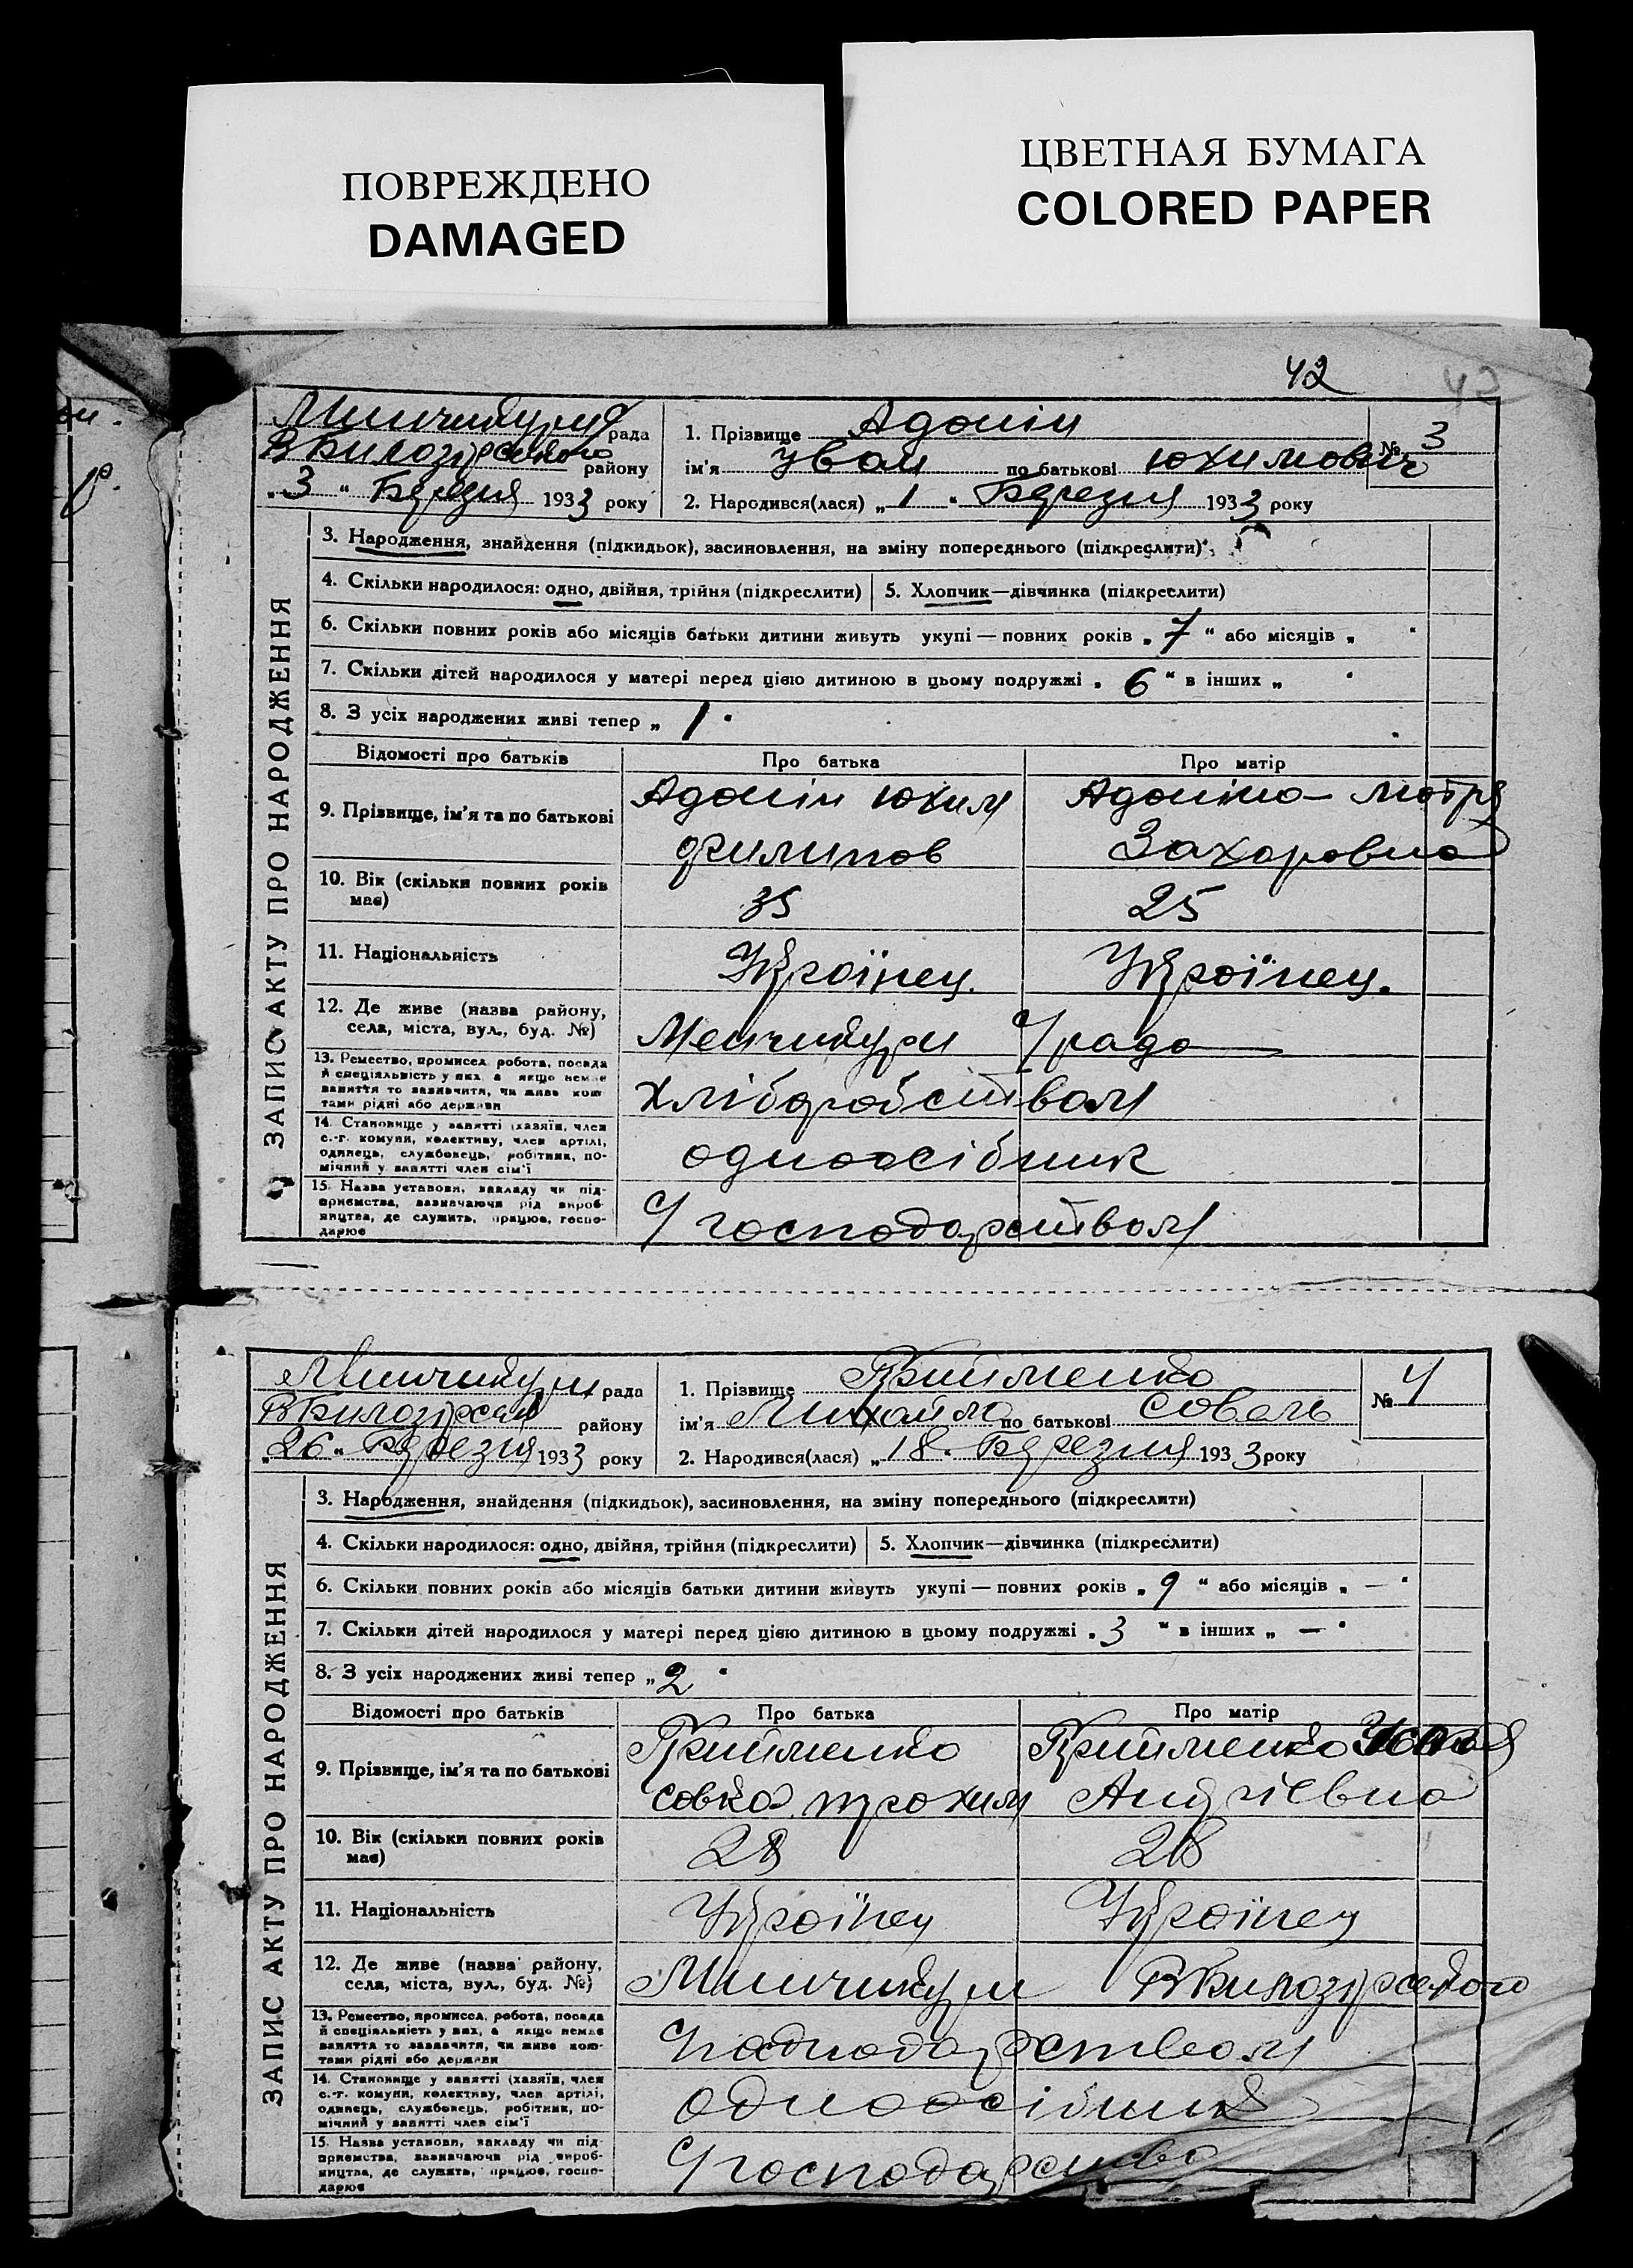 ПОВРЕЖДЕНО
DAMAGED
ЦВЕТНАЯ БУМАГА
COLORED PAPER
42
42
Минчикури рада
В Билозірського району
„3“ Березня 1933 року
1. Прізвище Адонін
ім'я Іван по батькові Юхимович
№ 3
2. Народився(лася) „1“ Березня 1933 року
ЗАПИС АКТУ ПРО НАРОДЖЕННЯ
3. Народження, знайдення (підкидьок), засиновлення, на зміну попереднього (підкреслити)
4. Скільки народилося: одно, двійня, трійня (підкреслити)
5. Хлопчик—дівчинка (підкреслити)
6. Скільки повних років або місяців батьки дитини живуть укупі — повних років „7“ або місяців „ “
7. Скільки дітей народилося у матері перед цією дитиною в цьому подружжі „6“ в інших „ “
8. З усіх народжених живі тепер „1“
Відомості про батьків
Про батька
Про матір
9. Прізвище, ім'я та по батькові
Адонін Юхим
филипов
Адоніна — Мотря
Захаровна
10. Вік (скільки повних років має)
35
25
11. Національність
Українец.
Українец.
12. Де живе (назва району, села, міста, вул., буд. №)
рада
13. Ремество, промисел, робота, посада й спеціяльність у них, а якщо немає заняття то зазначити, чи живе коштами рідні або держави
хліборобством
14. Становище у занятті (хазяїн, член с.-г. комуни, колективу, член артілі, одинець, службовець, робітник, помічний у занятті член сім'ї
одноосібник
15. Назва установи, закладу чи підприємства, зазначаючи рід виробництва, де служить, працює, господарює
У господарством
рада
району
„26“ Березня 1933 року
1. Прізвище
ім'я Михайло по батькові
№ 4
2. Народився(лася) „18“ Березня 1933 року
ЗАПИС АКТУ ПРО НАРОДЖЕННЯ
3. Народження, знайдення (підкидьок), засиновлення, на зміну попереднього (підкреслити)
4. Скільки народилося: одно, двійня, трійня (підкреслити)
5. Хлопчик—дівчинка (підкреслити)
6. Скільки повних років або місяців батьки дитини живуть укупі — повних років „9“ або місяців „—“
7. Скільки дітей народилося у матері перед цією дитиною в цьому подружжі „3“ в інших „—“
8. З усіх народжених живі тепер „2“
Відомості про батьків
Про батька
Про матір
9. Прізвище, ім'я та по батькові
трохим
Андріевна
10. Вік (скільки повних років має)
28
28
11. Національність
Українец
Українец
12. Де живе (назва району, села, міста, вул., буд. №)
13. Ремество, промисел, робота, посада й спеціяльність у них, а якщо немає заняття то зазначити, чи живе коштами рідні або держави
14. Становище у занятті (хазяїн, член с.-г. комуни, колективу, член артілі, одинець, службовець, робітник, помічний у занятті член сім'ї
одноосібник
15. Назва установи, закладу чи підприємства, зазначаючи рід виробництва, де служить, працює, господарює
У господарство